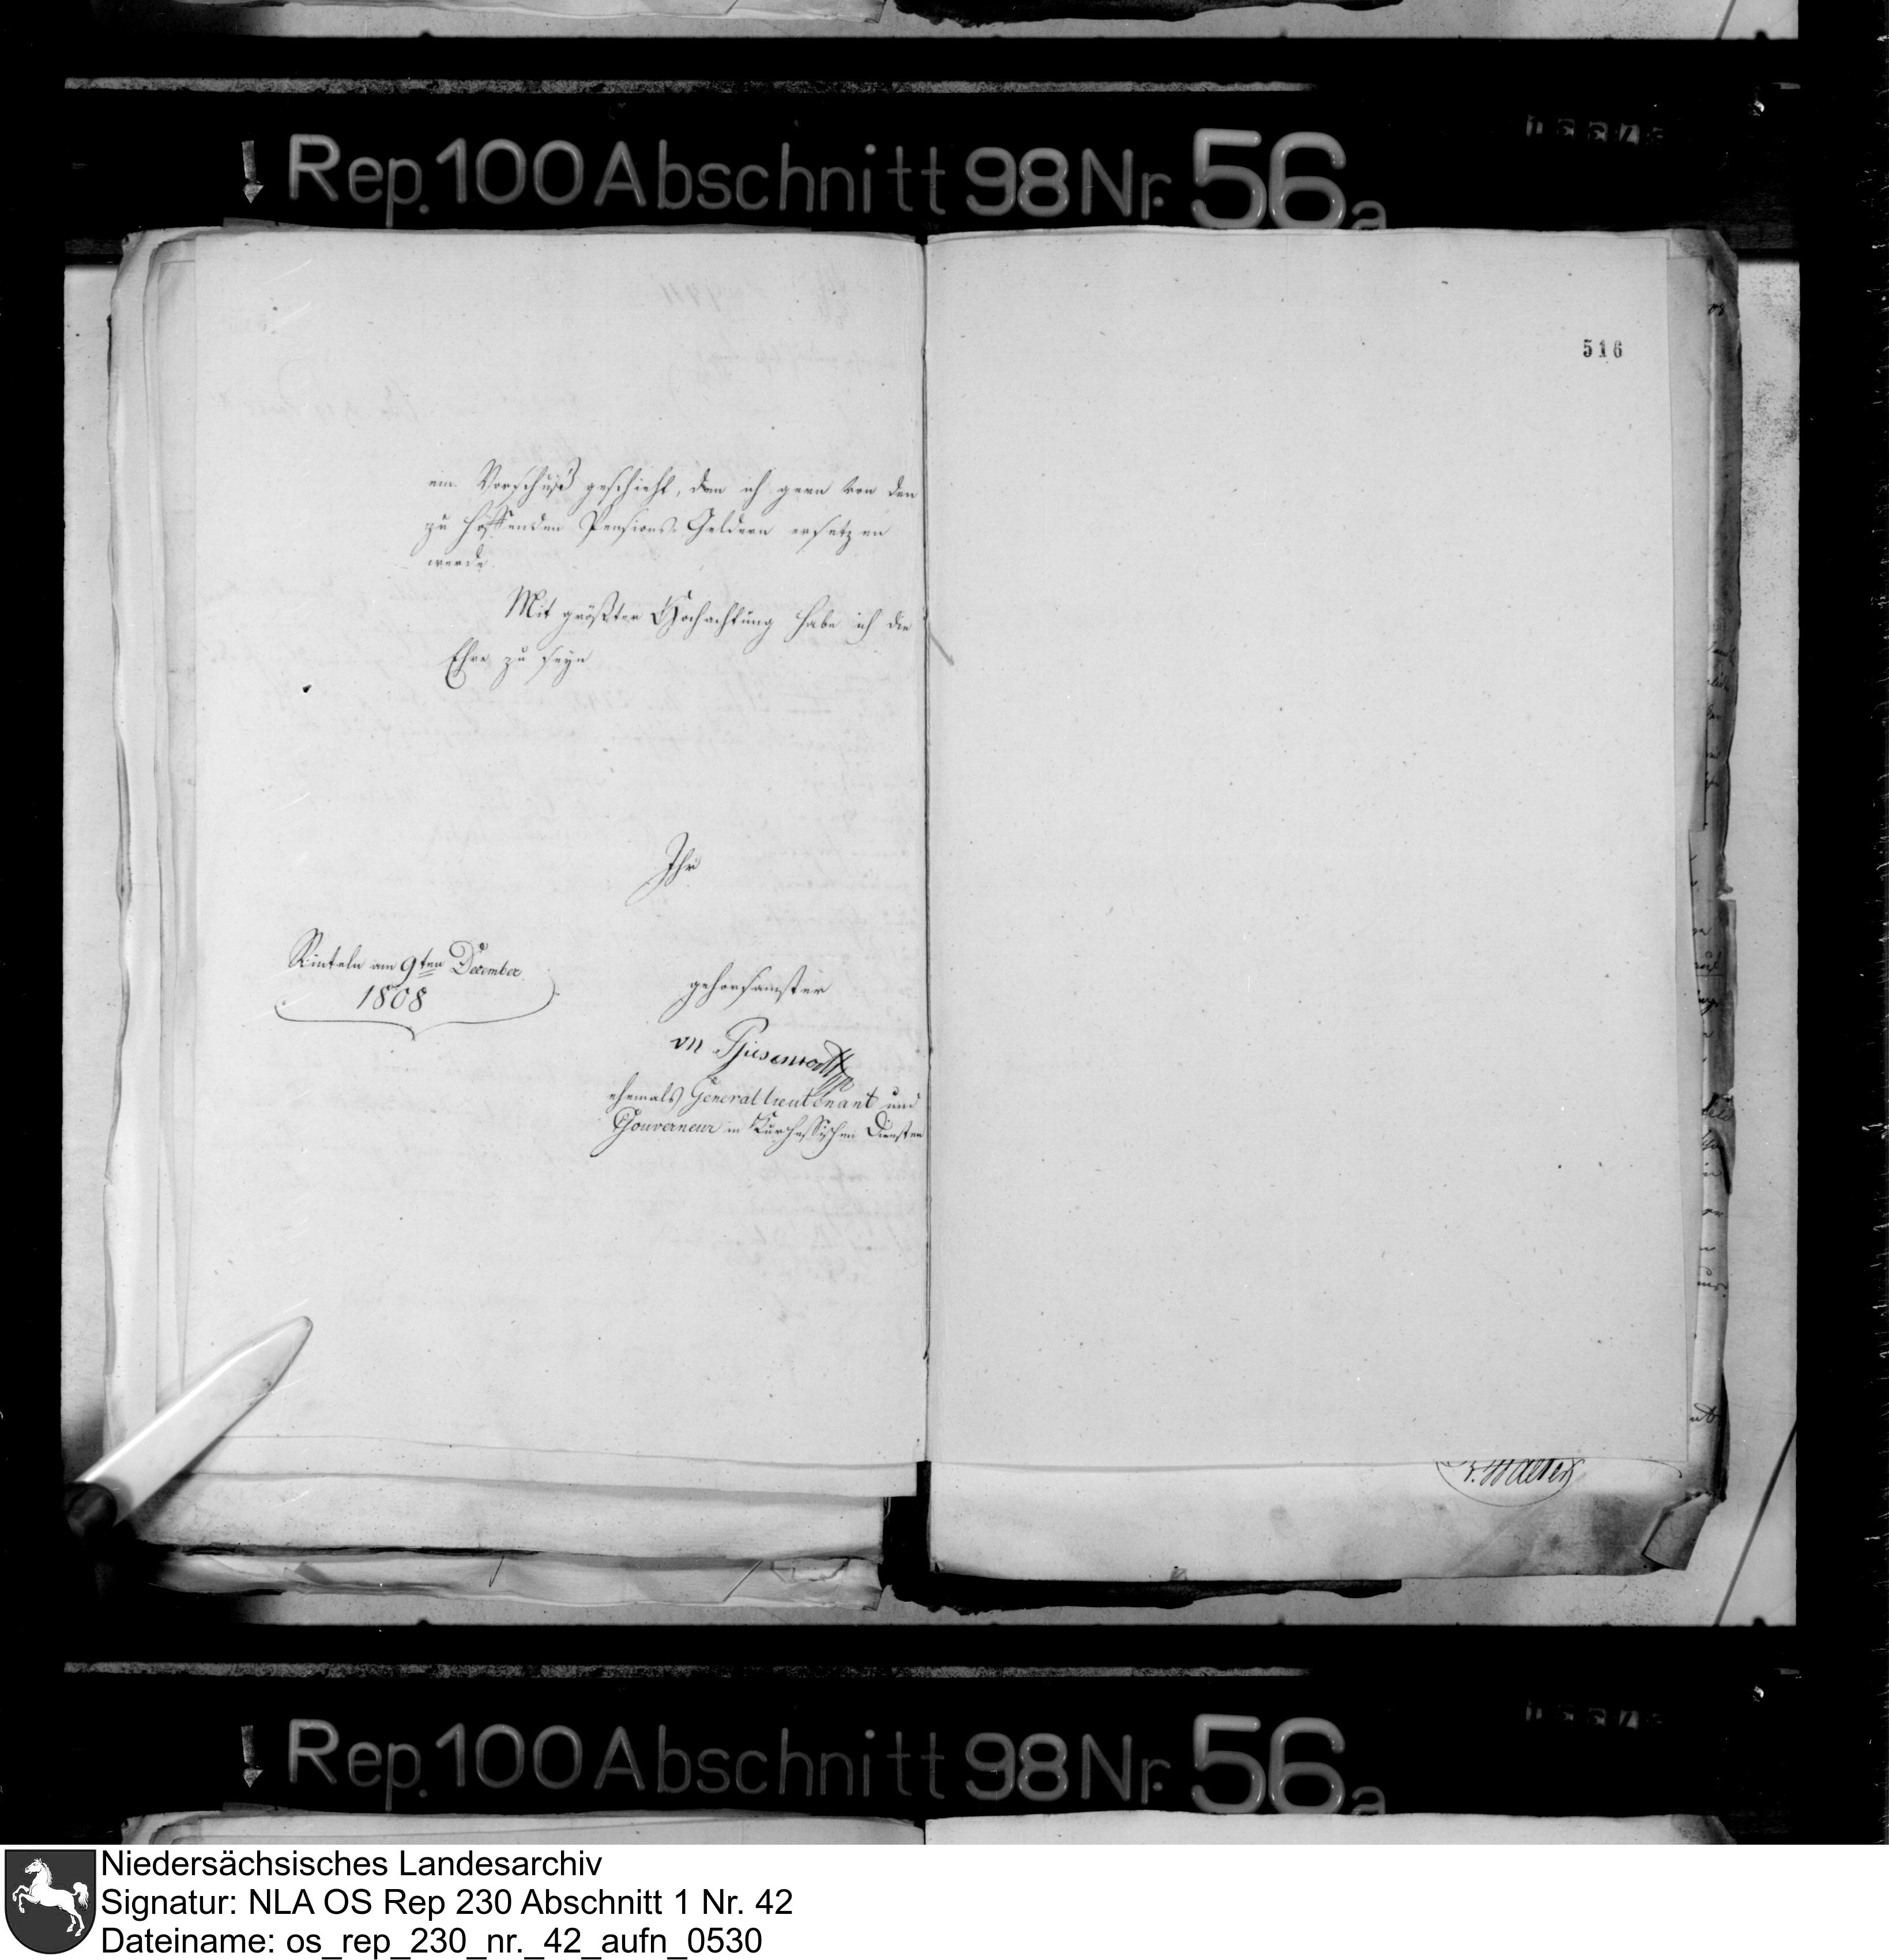 Rep. 100 Abschnitt 98 Nr. 56a
516
ein Vorschuß geschieht, den ich gern von den
zu hoffenden Pensions-Geldern ersetzen
werde.
Mit größter Hochachtung habe ich die
Ehre zu seyn
Ihr
Rinteln am 9ten December
1808
gehorsamster
von
ehemals Generallieutenant und
Gouverneur in Kurhessischen Diensten
Rep. 100 Abschnitt 98 Nr. 56a
Niedersächsisches Landesarchiv
Signatur: NLA OS Rep 230 Abschnitt 1 Nr. 42
Dateiname: os_rep_230_nr._42_aufn_0530